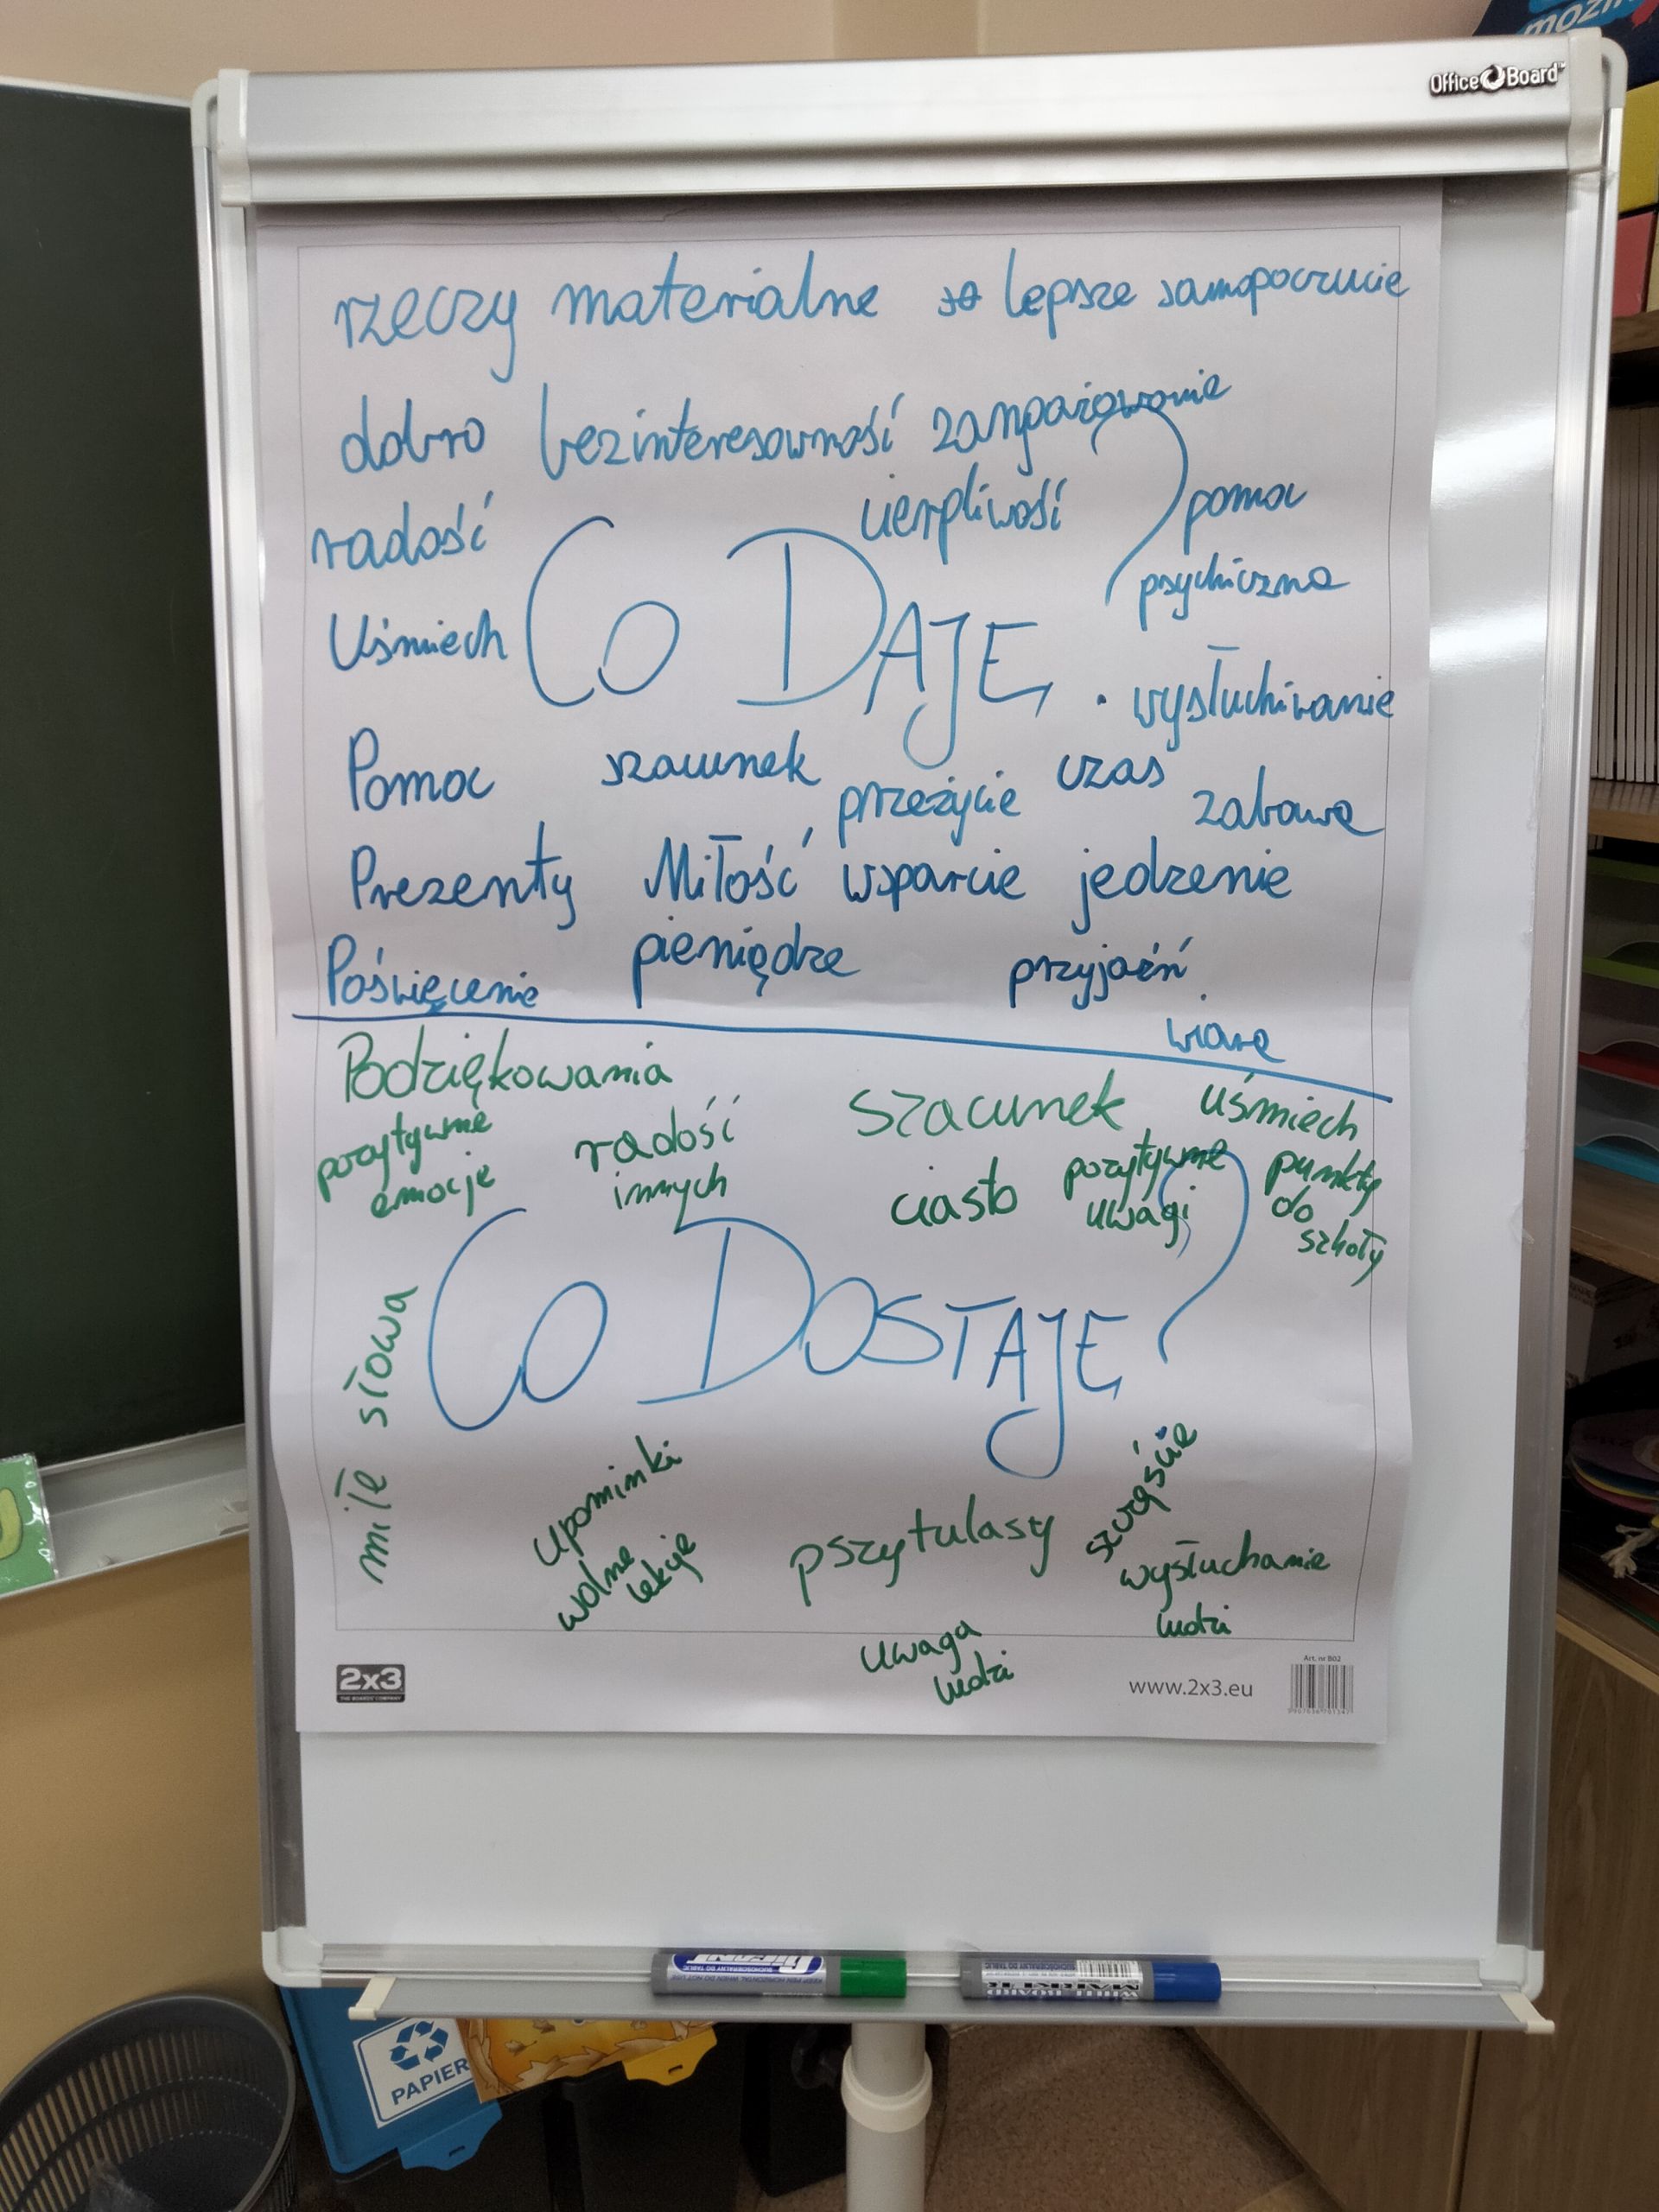 Office Board
rzeczy materialne lepsze samopoczucie
dobro bezinteresowność zaangażowanie
radość cierpliwość pomoc
psychiczna
Uśmiech CO DAJĘ? wysłuchiwanie
Pomoc szacunek przeżycie czas zabawę
Prezenty Miłość wsparcie jedzenie
Poświęcenie pieniądze przyjaźń
wiarę
Podziękowania szacunek uśmiech
pozytywne emocje
radość innych
ciasto
pozytywne uwagi
punkty do szkoły
CO DOSTAJĘ?
miłe słowa
upominki
wolne lekcje
pszytulasy
szczęście
wysłuchanie ludzi
uwaga ludzi
2x3
THE BOARDS' COMPANY
www.2x3.eu
Art. nr B02
PAPIER